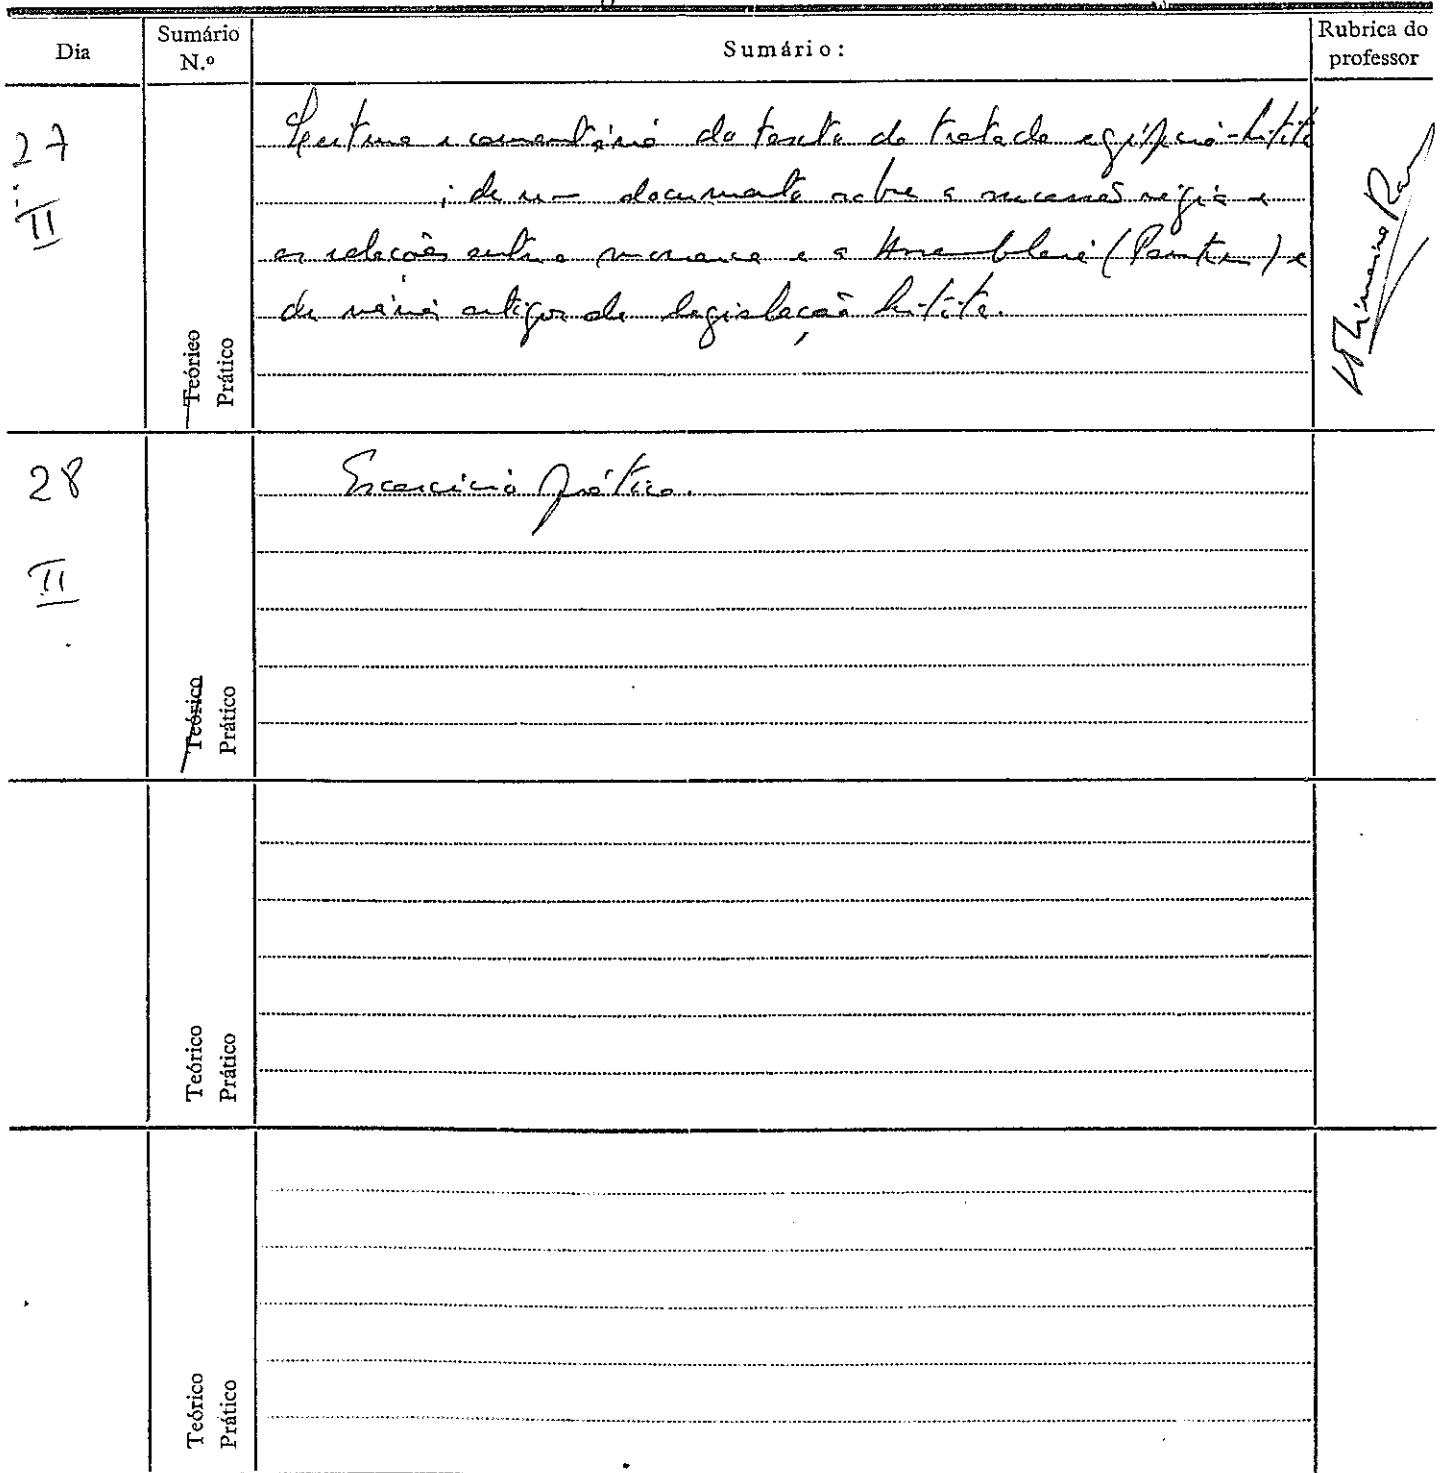 Dia
Sumário N.º
Sumário:
Rubrica do professor
27
II
Leitura e comentário do texto do tratado egípcio-hitita
; de um documento sobre a sucessão régia e
as relações entre o monarca e a Assembleia (Pankus) e
de vários artigos da legislação hitita.
Teórico
Prático
28
II
Exercício prático.
Teórico
Prático
Teórico
Prático
Teórico
Prático